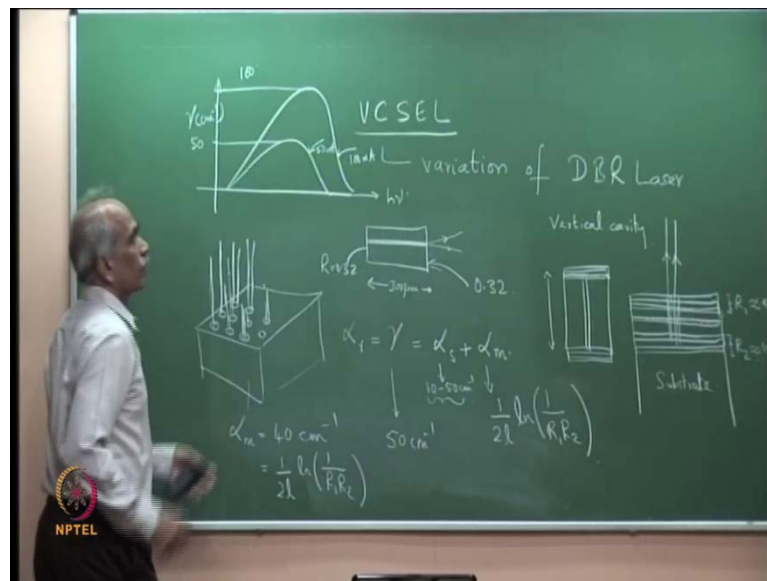 100
γ(cm⁻¹)
50
50mA
100mA
hν
VCSEL
variation of DBR Laser
Vertical cavity
R=0.32
0.32
α_r = γ = α_s + α_m.
10-50cm⁻¹
50cm⁻¹
1/2l ln(1/R₁R₂)
α_m = 40 cm⁻¹
= 1/2l ln(1/R₁R₂)
R₁≈
R₂≈
Substrate
NPTEL